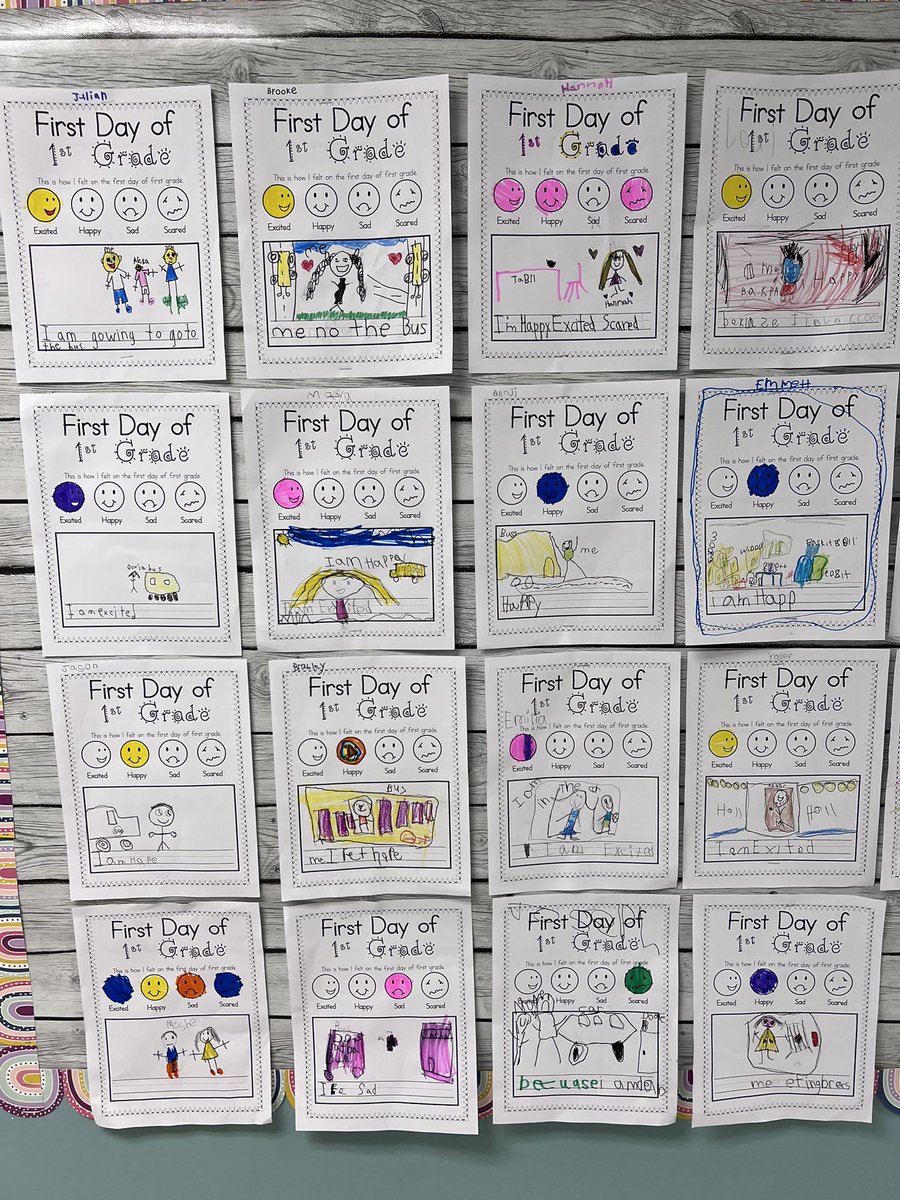 Julian
First Day of
1st Grade
This is how I felt on the first day of first grade.
Excited Happy Sad Scared
me
I am gowing to goto
the bus.
Brooke
First Day of
1st Grade
This is how I felt on the first day of first grade.
Excited Happy Sad Scared
me
me no the Bus
Hannah
First Day of
1st Grade
This is how I felt on the first day of first grade.
Excited Happy Sad Scared
TaBll
Hannah
I'm Happy Excited Scared
First Day of
1st Grade
This is how I felt on the first day of first grade.
Excited Happy Sad Scared
me
Happy
BakPa
I love
First Day of
1st Grade
This is how I felt on the first day of first grade.
Excited Happy Sad Scared
bus
I am excited
First Day of
1st Grade
This is how I felt on the first day of first grade.
Excited Happy Sad Scared
I am Happy
I am Excited
Benji
First Day of
1st Grade
This is how I felt on the first day of first grade.
Excited Happy Sad Scared
Bus
me
HaPPy
EMMett
First Day of
1st Grade
This is how I felt on the first day of first grade.
Excited Happy Sad Scared
I am Happ
Jason
First Day of
1st Grade
This is how I felt on the first day of first grade.
Excited Happy Sad Scared
I am Hape
Bradley
First Day of
1st Grade
This is how I felt on the first day of first grade.
Excited Happy Sad Scared
Bus
me. I felt hape
First Day of
1st Grade
Emilia
This is how I felt on the first day of first grade.
Excited Happy Sad Scared
I am
in the
I am Excited
Roger
First Day of
1st Grade
This is how I felt on the first day of first grade.
Excited Happy Sad Scared
Holl Holl
I am Excited
First Day of
1st Grade
This is how I felt on the first day of first grade.
Excited Happy Sad Scared
First Day of
1st Grade
This is how I felt on the first day of first grade.
Excited Happy Sad Scared
Sad
First Day of
1st Grade
This is how I felt on the first day of first grade.
Excited Happy Sad Scared
car
First Day of
1st Grade
This is how I felt on the first day of first grade.
Excited Happy Sad Scared
me etingbres